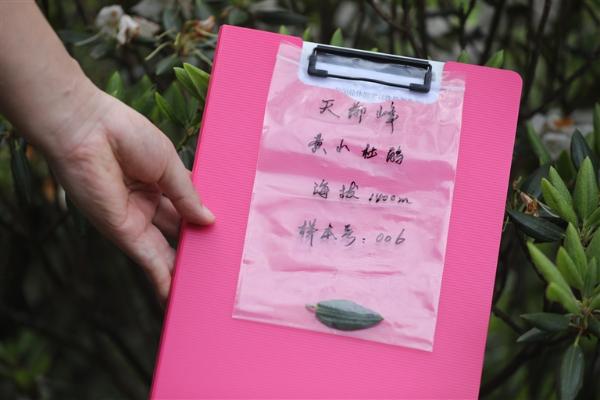 天都峰
黄山杜鹃
海拔
样本号：006